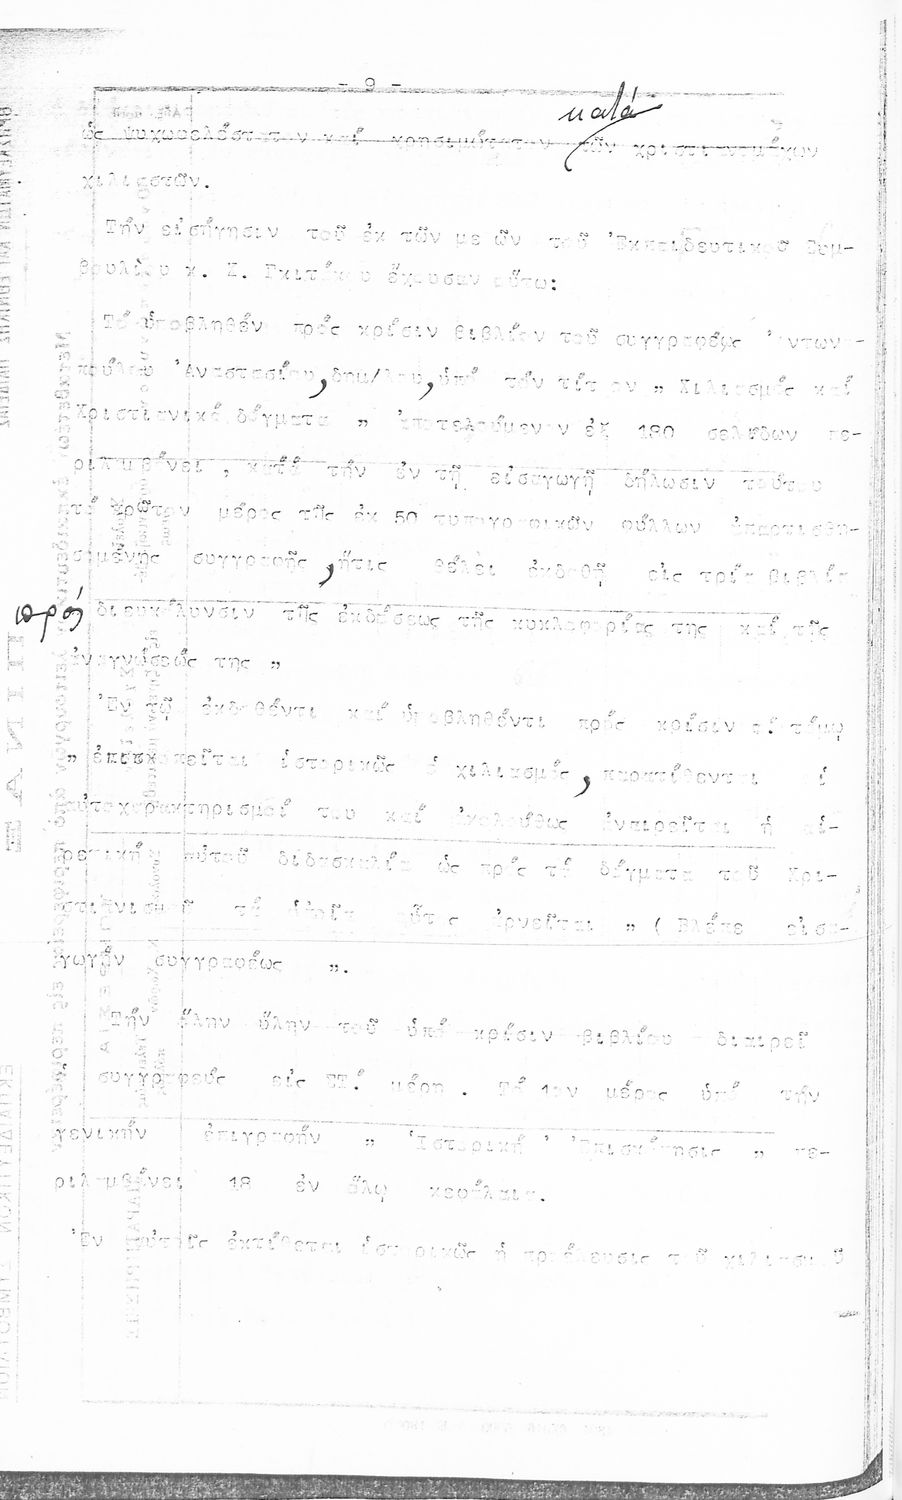 - 9 -
κατά
ὡς ψυχωφελέστατον καί χρησιμώτατον τῶν χριστιανομάχων
χιλιαστῶν.
Τήν εἰσήγησιν τοῦ ἐκ τῶν με ῶν τοῦ Ἐκπαιδευτικοῦ Συμ-
βουλίου κ. Ι. Γκιτάκου ἔχουσαν οὕτω:
Τό ὑποβληθέν πρός κρίσιν βιβλίον τοῦ συγγραφέως Ἀντωνο-
πούλου Ἀναστασίου, δημ/λου, ὑπό τόν τίτ ον „ Χιλιασμός καί
Χριστιανικά δόγματα „ ἀποτελούμενον ἐξ 180 σελίδων πε-
ριλαμβάνει, κατά τήν ἐν τῇ εἰσαγωγῇ δήλωσιν τούτου
τό πρῶτον μέρος τῆς ἐκ 50 τυπογραφικῶν φύλλων ἀπαρτισθη-
σομένης συγγραφῆς, ἥτις θέλει ἐκδοθῇ εἰς τρία βιβλία
πρός διευκόλυνσιν τῆς ἐκδόσεως τῆς κυκλοφορίας της καί τῆς
ἀναγνώσεώς της „
Ἐν τῷ ἐκδοθέντι καί ὑποβληθέντι πρός κρίσιν α΄ τόμῳ
„ ἐπισκοπεῖται ἱστορικῶς ὁ χιλιασμός, παρατίθενται οἱ
αὐτοχαρακτηρισμοί του καί ἀκολούθως ἀναιρεῖται ἡ αἱ-
ρετική αὐτοῦ διδασκαλία ὡς πρός τά δόγματα τοῦ Χρι-
στιανισμοῦ τά ὁποῖα οὗτος ἀρνεῖται „ ( Βλέπε εἰσα-
γωγήν συγγραφέως „.
Τήν ὅλην ὕλην τοῦ ὑπό κρίσιν βιβλίου διαιρεῖ
συγγραφεύς εἰς ΣΤ΄ μέρη . Τό 1ον μέρος ὑπό τήν
γενικήν ἐπιγραφήν „ Ἱστορική Ἐπισκόπησις „ πε-
ριλαμβάνει 18 ἐν ὅλῳ κεφάλαια.
Ἐν αὐτοῖς ἐκτίθεται ἱστορικῶς ἡ προέλευσις τοῦ χιλιασμοῦ